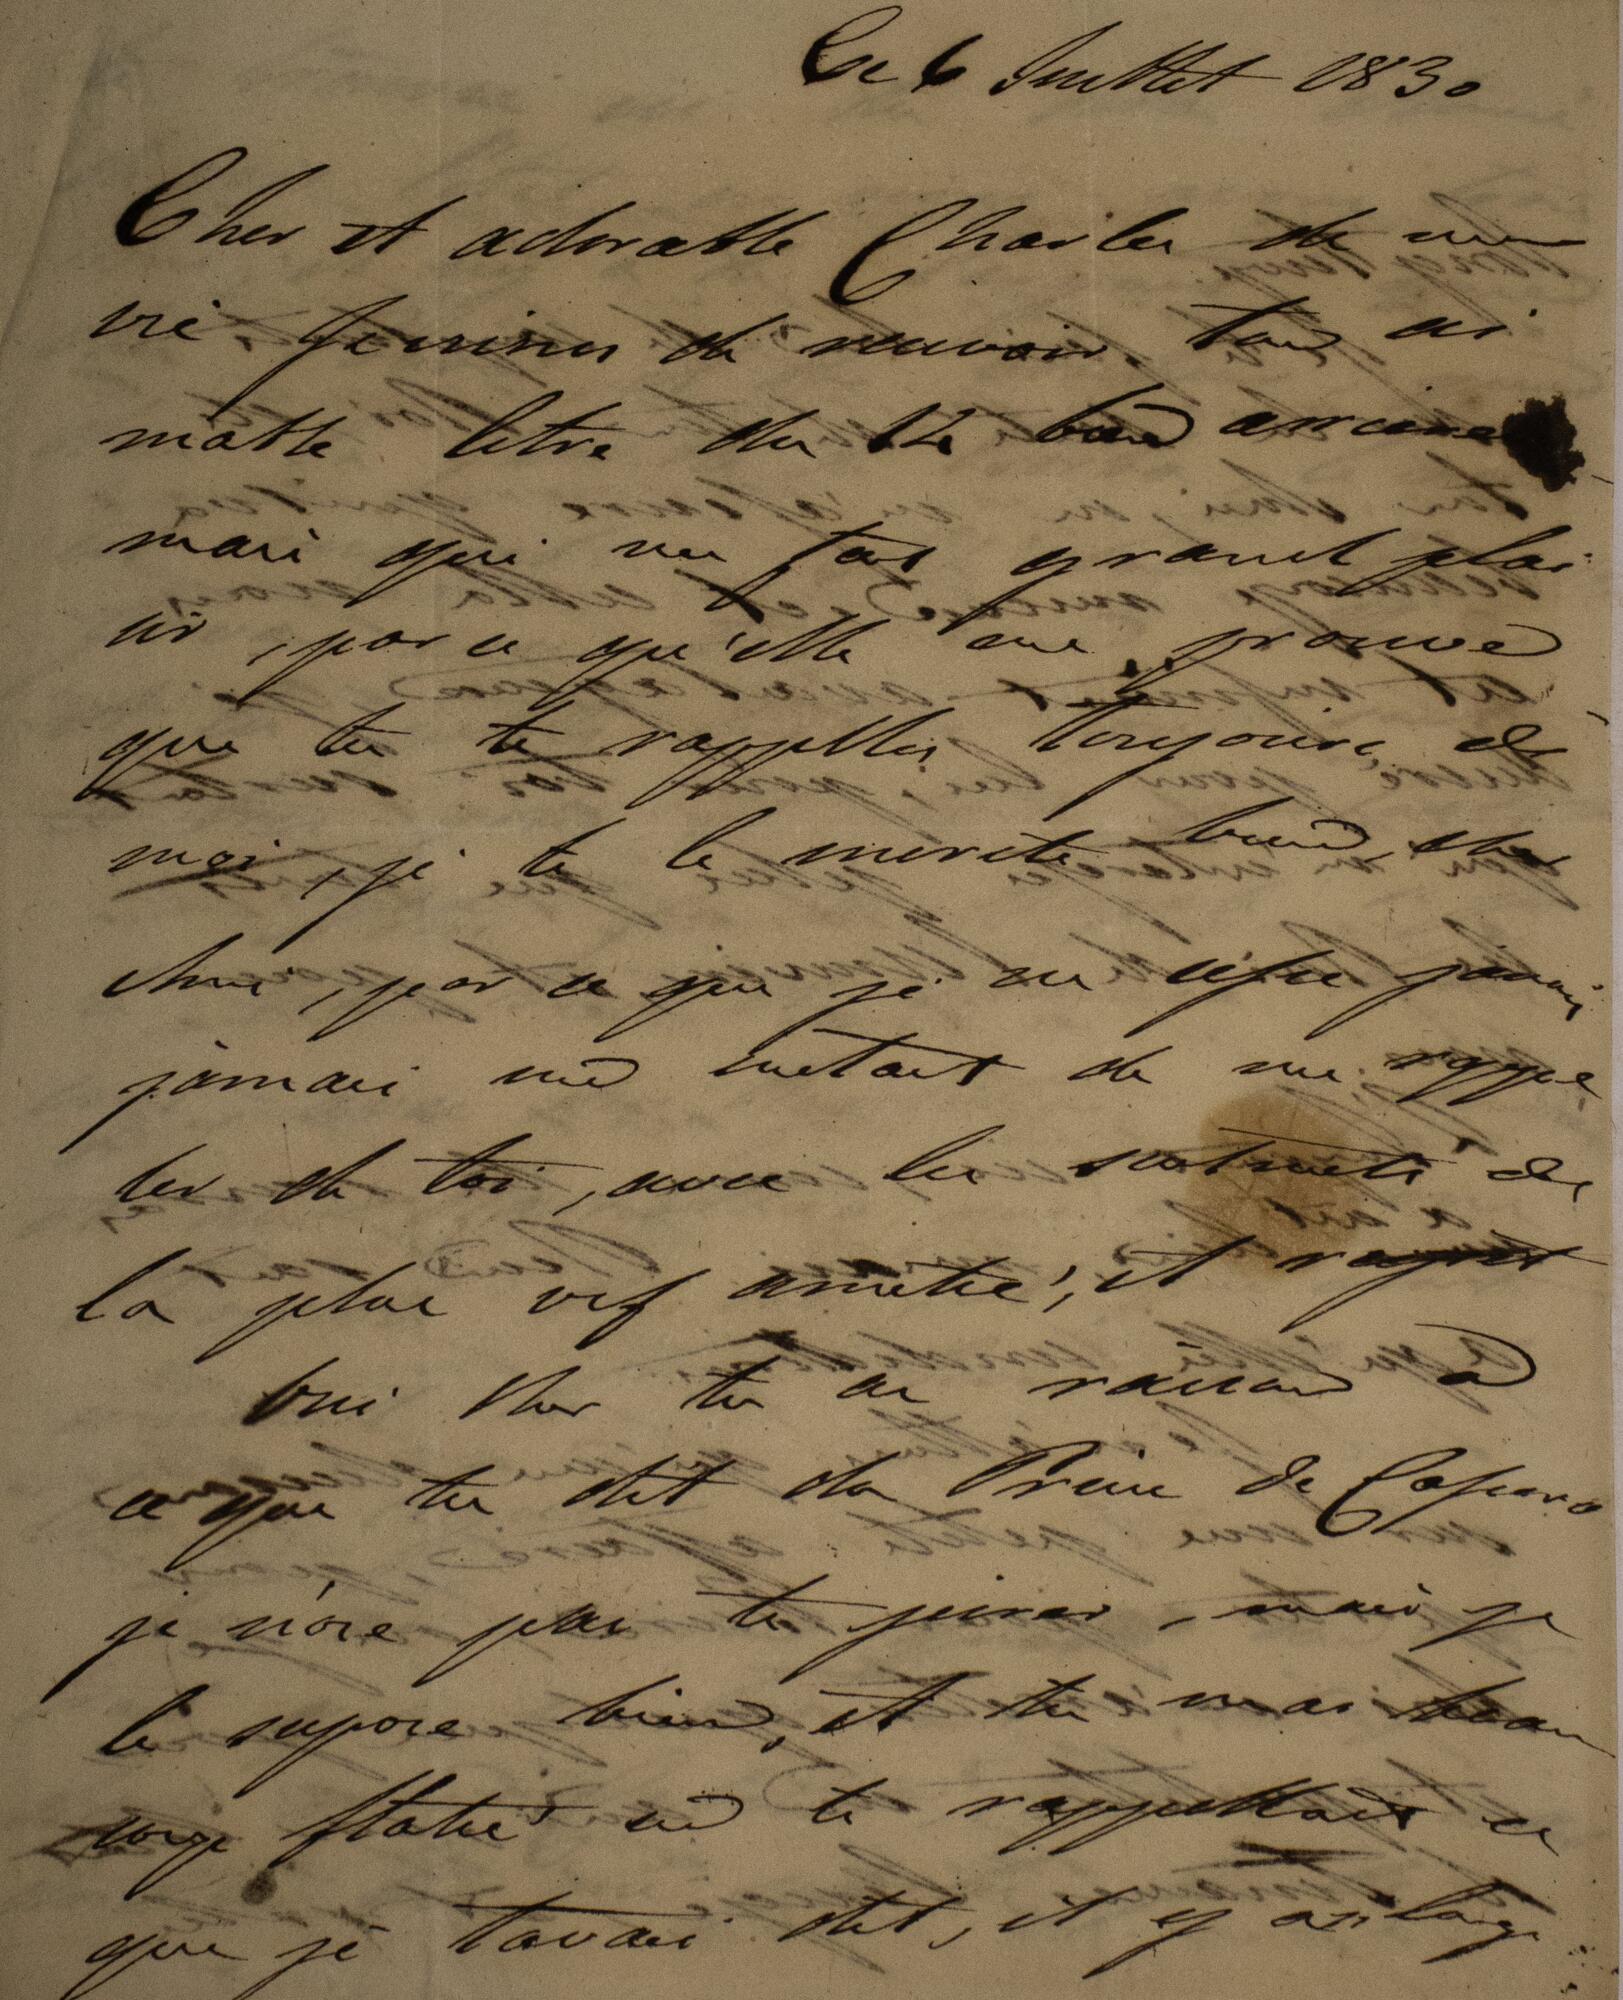 Ce 6 Juillet 1830
Cher et adorable Charles de ma
vie je viens de recevoir ton ai
mable letre du 12 bien
mais qui me fait grand plai
sir, par ce qu'elle me prouve
que tu te rappelles toujours de
moi, je te le merite bien, cher
Ami, par ce que je ne cesse jamai
jamais un instant de me rappe
ler de toi, avec les de
la plus vif amitié, et
Oui cher tu as raison à
ce que tu dit du Prince de Capoue
je n'ose pas te jurer, mais je
le supose bien, et tu mas beau
coup flatté en te rappellant ce
que je tavais dit, il y a